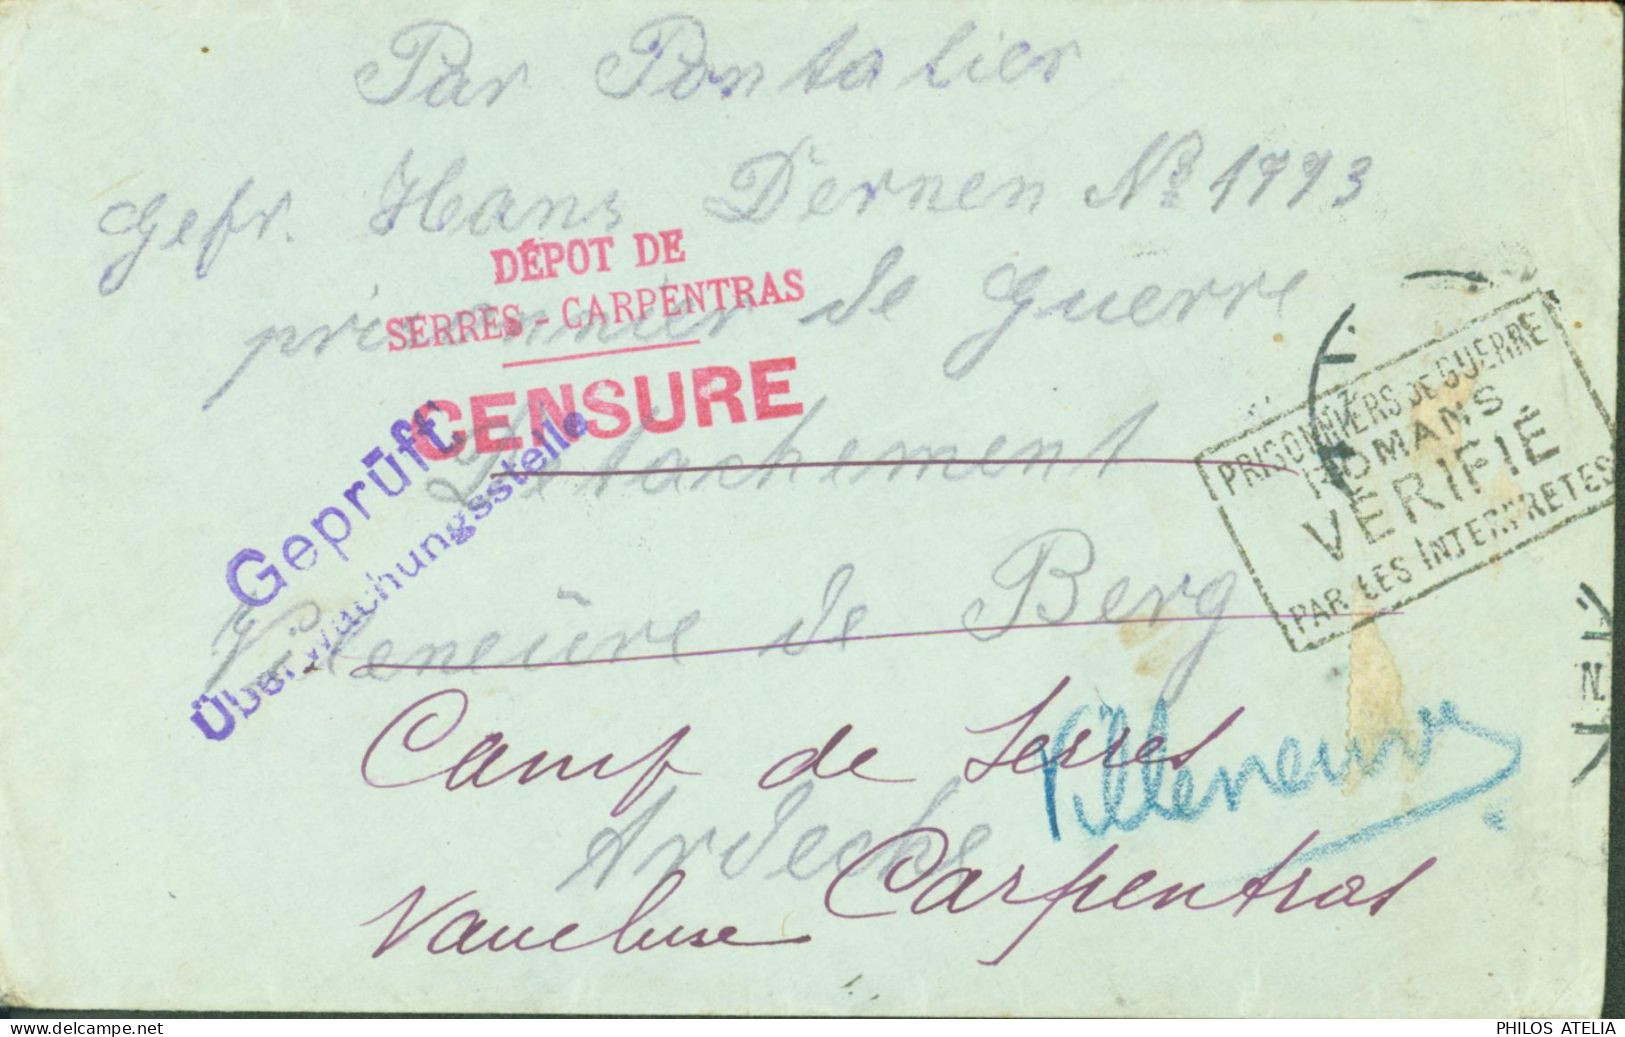 Par Pontalier
Gefr. Hans Dernen No 1993
prisonnier de Guerre
DÉPOT DE
SERRES - CARPENTRAS
CENSURE
Detachement
Geprüft
Überwachungsstelle
PRISONNIERS DE GUERRE
ROMANS
VÉRIFIÉ
PAR LES INTERPRÈTES
Villeneûve de Berg
Camp de Serres
Villeneuve
Ardeche
Carpentras
Vaucluse
PHILOS ATELIA